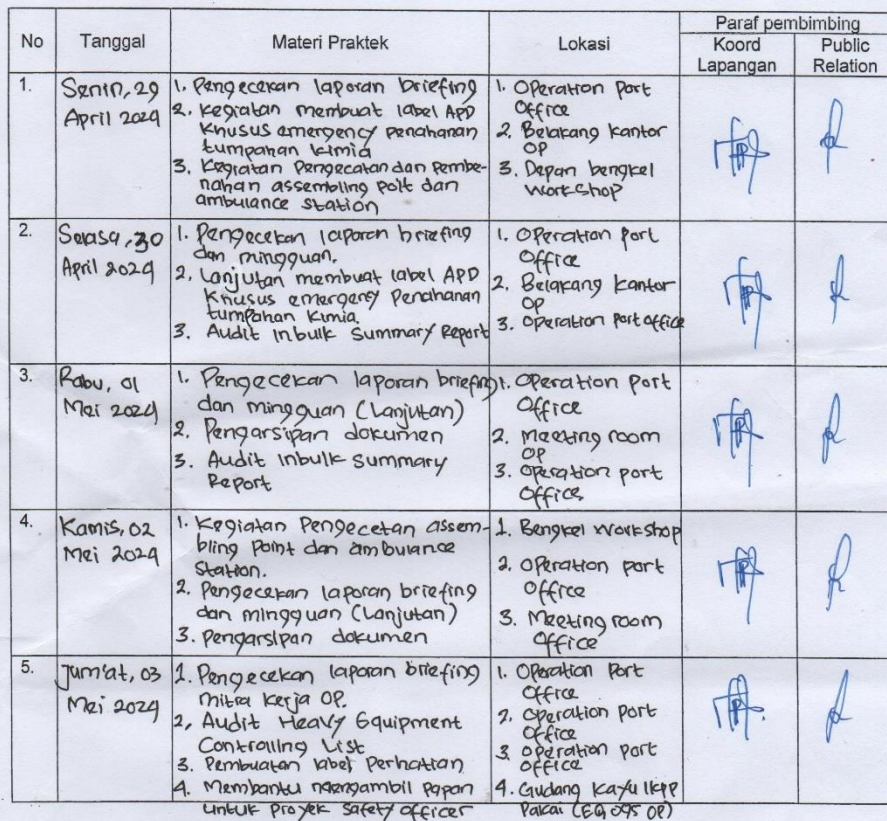 No Tanggal Materi Praktek Lokasi Paraf pembimbing
Koord Lapangan Public Relation
1.
Senin, 29
April 2024
1. Pengecekan laporan briefing
2. Kegiatan membuat label APD
Khusus emergency penahanan
tumpahan kimia
3. Kegiatan Pengecatan dan Pembe-
nahan assembling poit dan
ambulance station
1. Operation port
Office
2. Belakang kantor
OP
3. Depan bengkel
workshop
2.
Selasa, 30
April 2024
1. Pengecekan laporan briefing
dan mingguan.
2. Lanjutan membuat label APD
Khusus emergency Penahanan
tumpahan kimia.
3. Audit Inbulk Summary Report
1. Operation port
Office
2. Belakang kantor
OP
3. Operation port office
3.
Rabu, 01
Mei 2024
1. Pengecekan laporan briefing
dan mingguan (Lanjutan)
2. Pengarsipan dokumen
3. Audit Inbulk Summary
Report
1. Operation port
Office
2. Meeting room
OP
3. Operation port
Office
4.
Kamis, 02
Mei 2024
1. Kegiatan Pengecetan assem-
bling Point dan ambulance
station.
2. Pengecekan laporan briefing
dan mingguan (Lanjutan)
3. Pengarsipan dokumen
1. Bengkel workshop
2. Operation port
Office
3. Meeting room
Office
5.
Jum'at, 03
Mei 2024
1. Pengecekan laporan briefing
mitra kerja OP.
2, Audit Heavy Equipment
Controlling List
3. Pembuatan label Perhatian
4. Membantu mengambil papan
untuk proyek safety officer
1. Operation Port
Office
2. Operation port
office
3. Operation port
office
4. Gudang kayu IKPP
Pakai (EQ 095 OP)